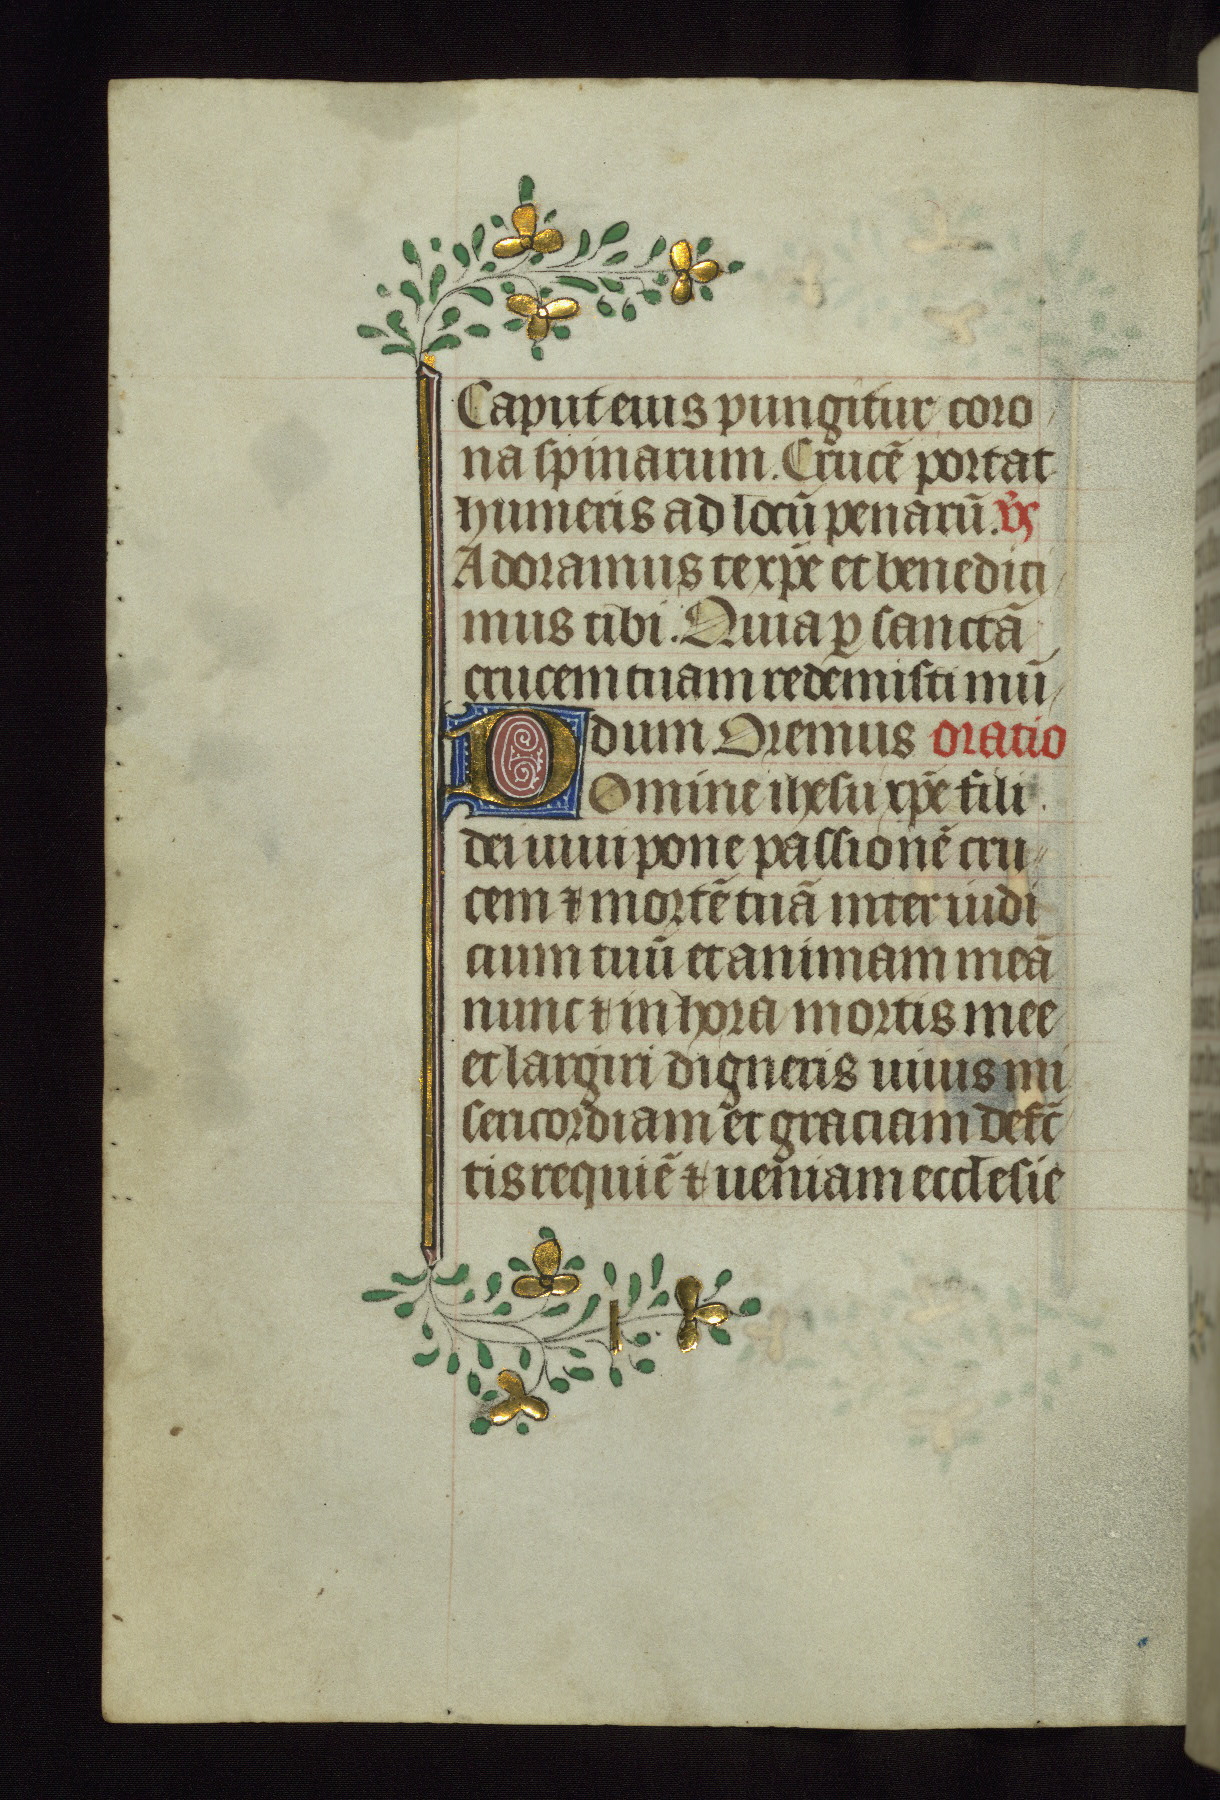 Caput eius pungitur coro
na spinarum. Crucē portat
humeris ad locū penarū. v̄s
Adoramus te xp̄e et benedici
mus tibi. Quia ꝑ sanctā
crucem tuam redemisti mū
dum Oremus oratio
Domine ihesu xp̄e fili
dei uiui pone passionē cru
cem ⁊ mortē tuā inter iudi
cium tuū et animam meā
nunc ⁊ in hora mortis mee
et largiri digneris uiuis mi
sericordiam et graciam defc̄
tis requiē ⁊ ueniam ecclesie